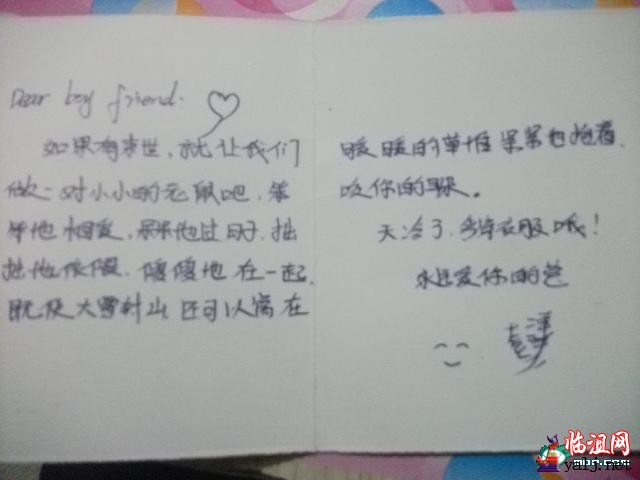 Dear boy friend.
如果有来世，就让我们
做一对小小的老鼠吧，笨
笨地相爱，呆呆地过日子，拙
拙地依偎，傻傻地在一起.
既使大雪封山，还可以窝在
暖暖的草堆 紧紧地抱着.
咬你的耳朵。
天冷了，多穿衣服哦！
永远爱你的
临沮网